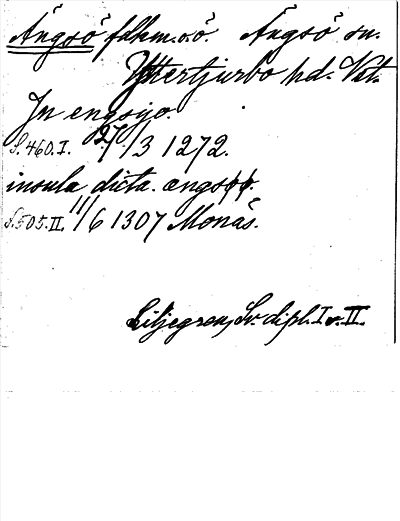 Ängsö fdhm. o. ö. Ängsö sn.
Yttertjurbo hd. Vstl.
In engsyo.
S. 460. I. 27/3 1272.
insula dicta engsøø.
S. 505. II. 11/6 1307 Monäs.
Liljegren, Sv. dipl. I o. II.